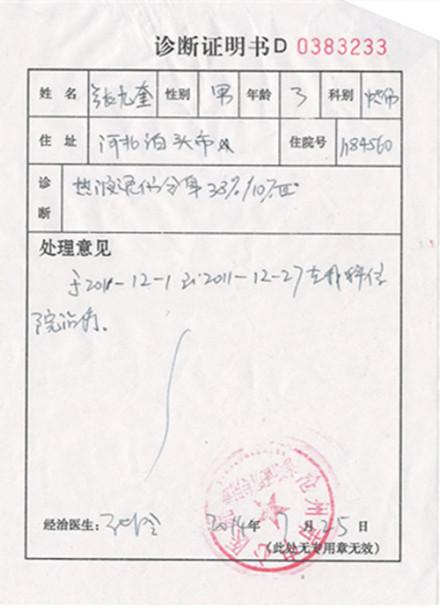 诊断证明书D 0383233
姓名 张九奎 性别 男 年龄 3 科别 烧伤
住址 河北泊头市 住院号 h84560
诊断 热液烫伤 33%/10%
处理意见
于2011-12-1 到2011-12-27在我科住
院治疗。
经治医生: 2014年 7月25日
(此处无专用章无效)